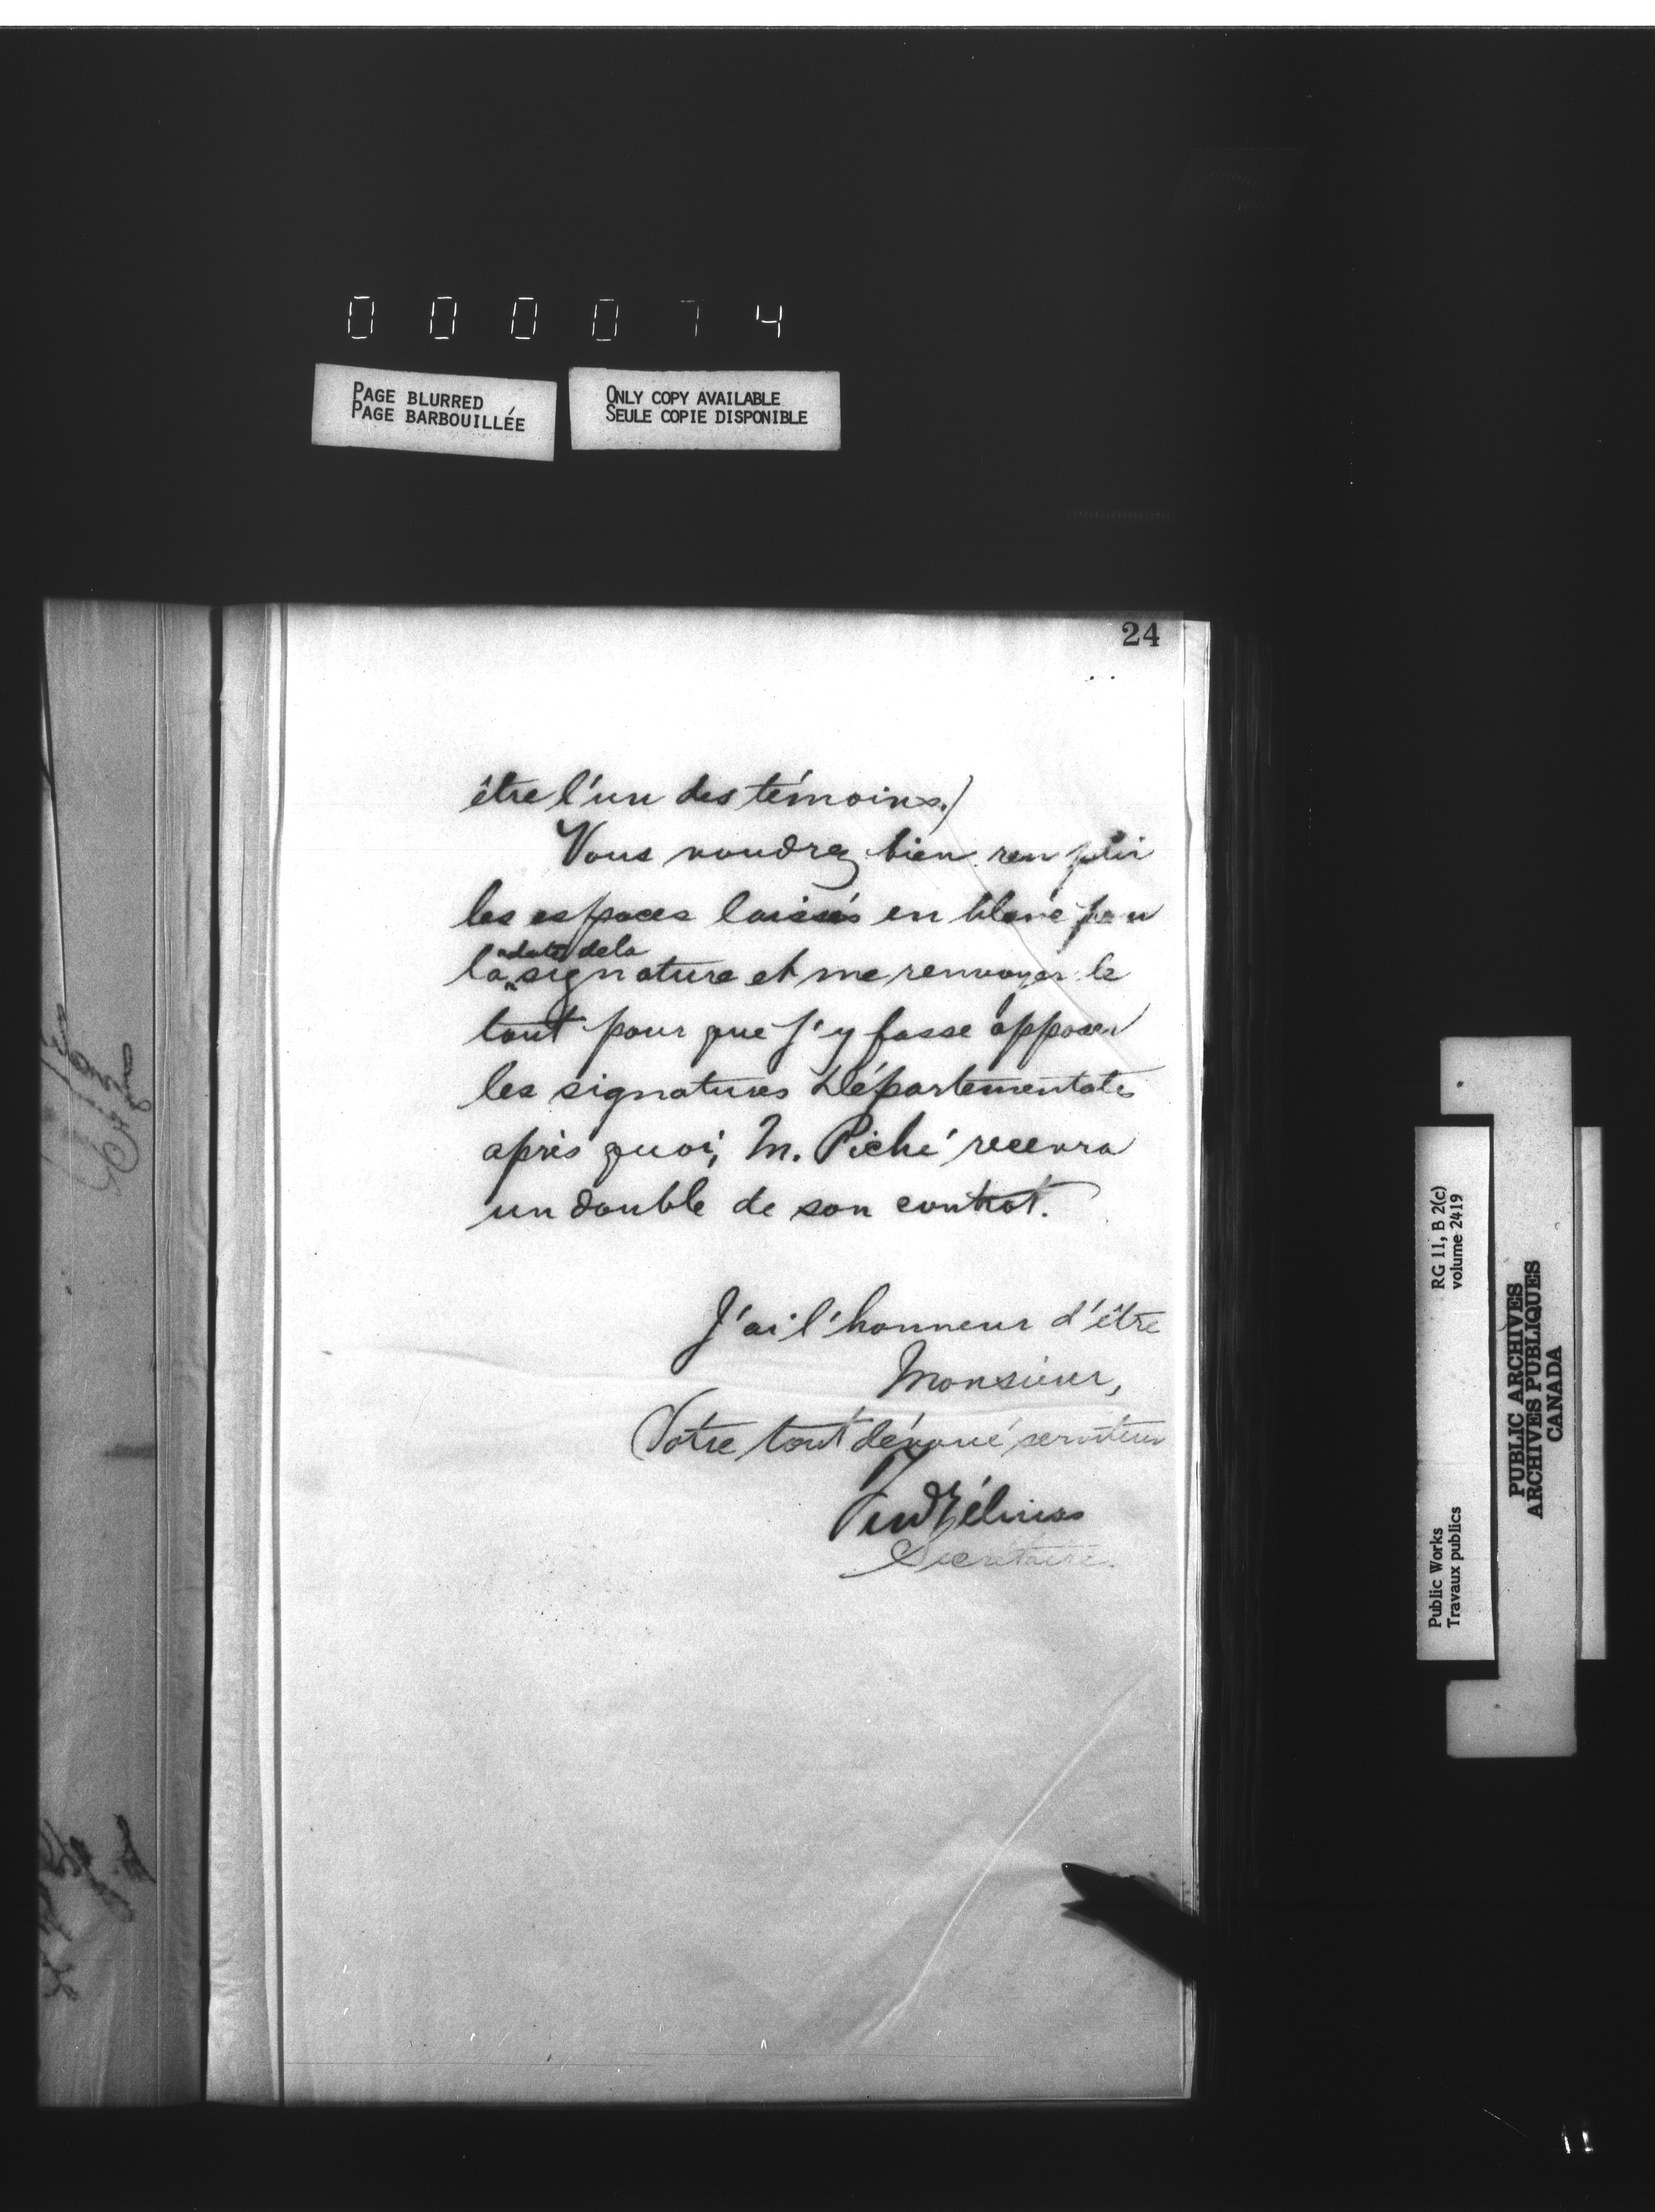 000074
PAGE BLURRED
PAGE BARBOUILLÉE
ONLY COPY AVAILABLE
SEULE COPIE DISPONIBLE
24
être l'un des témoins.)
Vous voudrez bien remplir
les espaces laissés en blanc pour
date de la
la signature et me renvoyer le
tout pour que j'y fasse apposer
les signatures Départementales
après quoi, M. Piché recevra
un double de son contrat.
J'ai l'honneur d'être
Monsieur,
Votre tout dévoué serviteur
Secrétaire.
Public Works
Travaux publics
RG 11, B 2(c)
volume 2419
PUBLIC ARCHIVES
ARCHIVES PUBLIQUES
CANADA